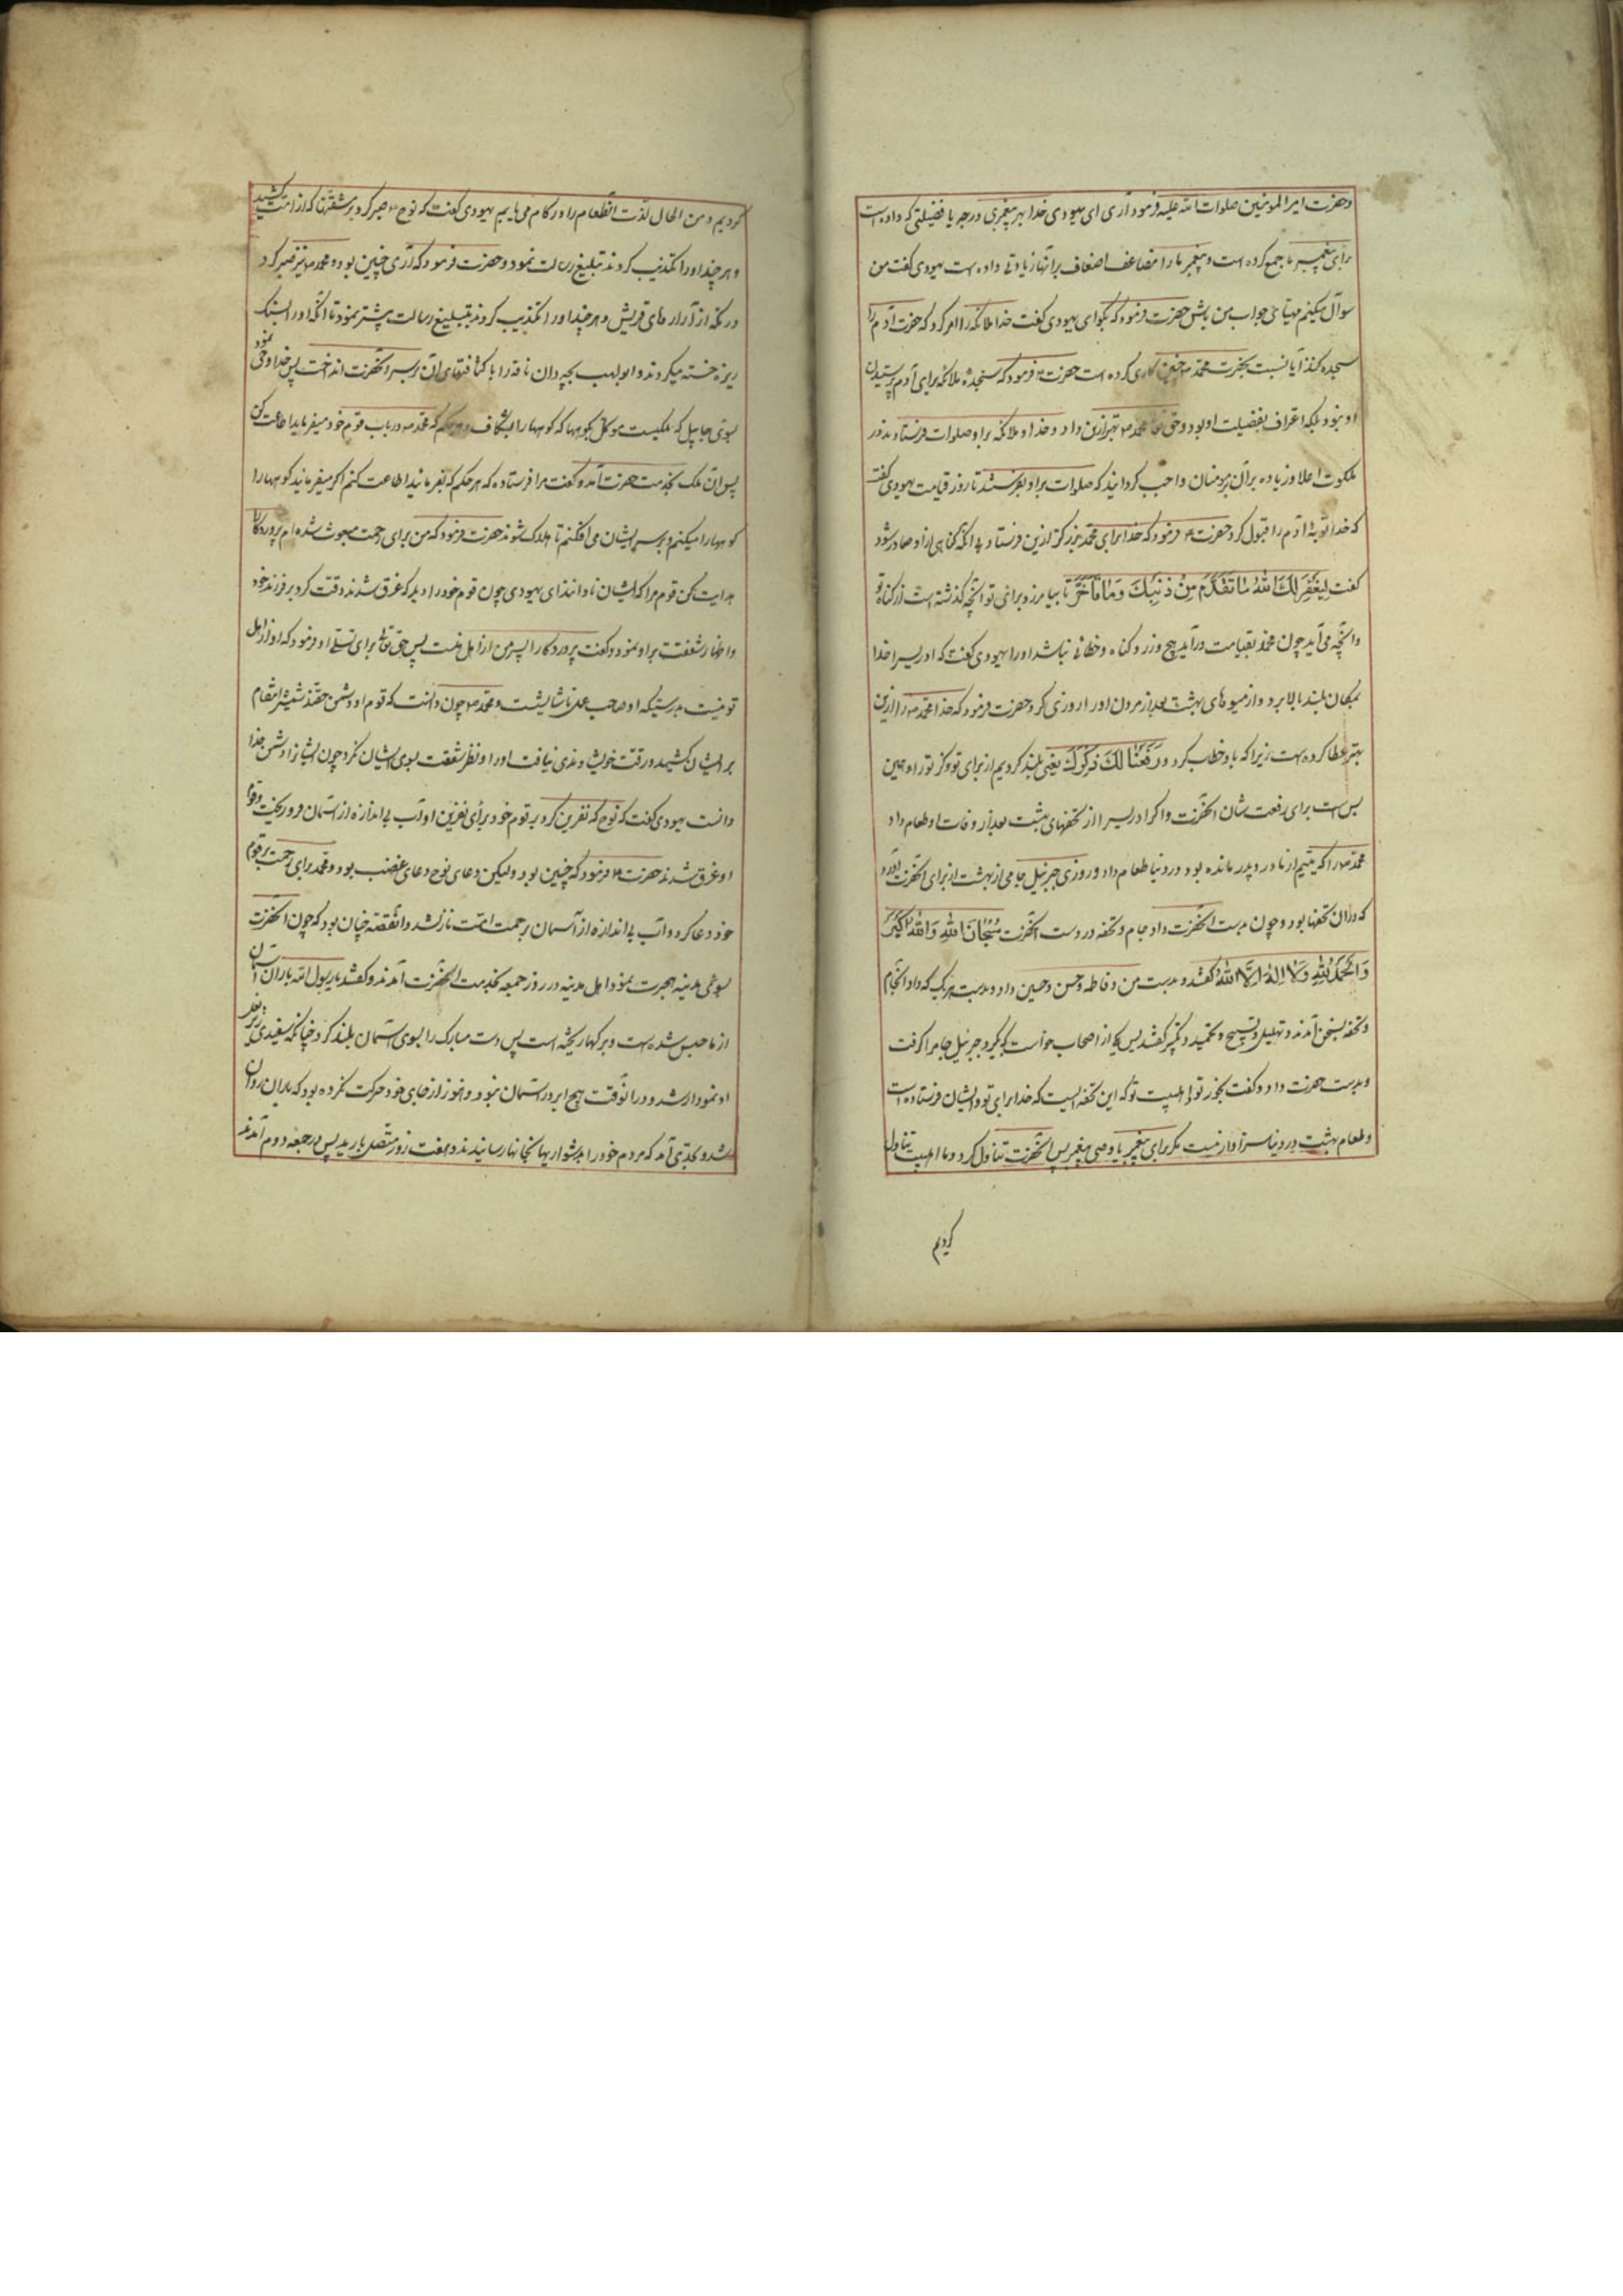 و حضرت امیر المومنین صلوات الله علیه فرمود آری ای یهودی خدا بهر پیغمبری درجه یا فضیلتی که داده است
برای پیغمبر ما جمع کرده است و پیغمبر ما را مضاعف اضعاف بر آنها زیادتی داده است یهودی گفت من
سوآل میکنم مهیای جواب من باش حضرت فرمود که بگو ای یهودی گفت خدا ملائکه را امر کرد که حضرت آدم را
سجده کنند آیا نسبت بحضرت محمد ص چنین کاری کرده است حضرت ع فرمود که سجده ملائکه برای آدم پرستیدن
او نبود بلکه اعتراف بفضیلت او بود و حق تعا محمد ص بهتر ازین داد و خدا و ملائکه بر او صلوات فرستادند در
ملکوت اعلا و زیاده بر آن بر مومنان واجب گردانید که صلوات بر او بفرستند تا روز قیامت یهودی گفت
که خدا توبهٔ آدم را قبول کرد حضرت ع فرمود که خدا برای محمد بزرگتر ازین فرستاد بی آنکه گناهی از او صادر شود
گفت لِیَغْفِرَ لَکَ اللهُ مَا تَقَدَّمَ مِنْ ذَنْبِکَ وَمَا تَأَخَّرَ تا بیامرزد برای تو آنچه گذشته است از گناه تو
و آنچه می آید چون محمد بقیامت درآید هیچ وزر و گناه و خطائی نباشد او را یهودی گفت که ادریس را خدا
بمکان بلند بالا برد و از میوهای بهشت بعد از مردن او را روزی کرد حضرت فرمود که خدا محمد ص را ازین
بهتر عطا کرده است زیرا که باو خطاب کرد و رَفَعْنَا لَکَ ذِکْرَکَ یعنی بلند کردیم از برای تو ذکر تو را و همین
بس است برای رفعت شان آنحضرت و اگر ادریس را از تحفهای بهشت بعد از وفات او طعام داد
محمد ص را که یتیم از مادر و پدر مانده بود در دنیا طعام داد و روزی جبرئیل جامی از بهشت از برای آنحضرت آورد
که در آن تحفها بود و چون بدست آنحضرت داد جام و تحفه در دست آنحضرت سُبْحَانَ اللهِ وَاللهُ اَکْبَرُ
وَالْحَمْدُ لِلّٰهِ وَلَا اِلٰهَ اِلَّا اللهُ گفتند و بدست من و فاطمه و حسن و حسین داد و بدست هر یک که داد آنجام
و تحفه بسخن آمدند و تهلیل و تسبیح و تحمید و تکبیر گفتند پس یکی از اصحاب خواست که بگیرد جبرئیل جام را گرفت
و بدست حضرت داد و گفت بخور تو با اهلبیت تو که این تحفه ایست که خدا برای تو و ایشان فرستاده است
و طعام بهشت در دنیا سزاوار نیست مگر برای پیغمبر یا وصی پیغمبر پس آنحضرت تناول کرد و ما اهلبیت تناول
کردیم
کردیم و من الحال لذت آنطعام را در کام می یابیم یهودی گفت که نوح ع صبر کرد بر مشقتها که از امت کشید
و هر چند او را تکذیب کردند تبلیغ رسالت نمود و حضرت فرمود که آری چنین بود و محمد ص نیز صبر کرد
در مکه از آزارهای قریش و هر چند او را تکذیب کردند تبلیغ رسالت بیشتر نمود تا آنکه او را بسنگ
ریزه خسته میکردند و ابو لهب بچه دان ناقه را با کثافتهای آن بر سر آنحضرت انداخت پس خدا وحی نمود
بسوی جابیل که ملکیست موکل بکوهها که کوهها را بشکاف و هر حکم که محمد ص در باب قوم خود میفرماید اطاعت کن
پس آن ملک بخدمت حضرت آمد و گفت مرا فرستاده که هر حکم که بفرمائید اطاعت کنم اگر میفرمائید کوهها را
کوهها را میکنم و بر سر ایشان می افکنم تا هلاک شوند حضرت فرمود که من برای رحمت مبعوث شده ام پروردگارا
هدایت کن قوم مرا که ایشان نادانند ای یهودی چون قوم خود را دید که غرق شدند رقت کرد بر فرزند خود
و اظهار شفقت بر او نمود و گفت پروردگارا پسر من از اهل منست پس حق تعالی برای تسلی او فرمود که او از اهل
تو نیست بدرستیکه او صاحب عمل ناشایست و محمد ص چون دانست که قوم او دشمن حقند شمشیر انتقام
بر ایشان کشید و رقت خویشاوندی نیافت او را و نظر شفقت بسوی ایشان نکرد چون ایشانرا دشمن خدا
دانست یهودی گفت که نوح که نفرین کرد بر قوم خود برای نفرین او آب بی اندازه از آسمان فرو ریخت و قوم
او غرق شدند حضرت ع فرمود که چنین بود و لیکن دعای نوح دعای غضب بود و محمد برای رحمت بر قوم
خود دعا کرد و آب بی اندازه از آسمان برحمت امت نازل شد و آنقصه چنان بود که چون آنحضرت
بسوی مدینه هجرت نمود اهل مدینه در روز جمعه بخدمت آنحضرت آمدند و گفتند یا رسول الله باران آسمان
از ما حبس شده است و برگها ریخته است پس دست مبارک را بسوی آسمان بلند کرد چنانکه سفیدی زیر بغل
او نمودار شد و در آنوقت هیچ ابر در آسمان نبود و هنوز از جای خود حرکت نکرده بود که باران روان
شد و بحدی آمد که مردم خود را بدشواریها بخانها رسانیدند و هفت روز متصل بارید پس در جمعه دوم آمدند